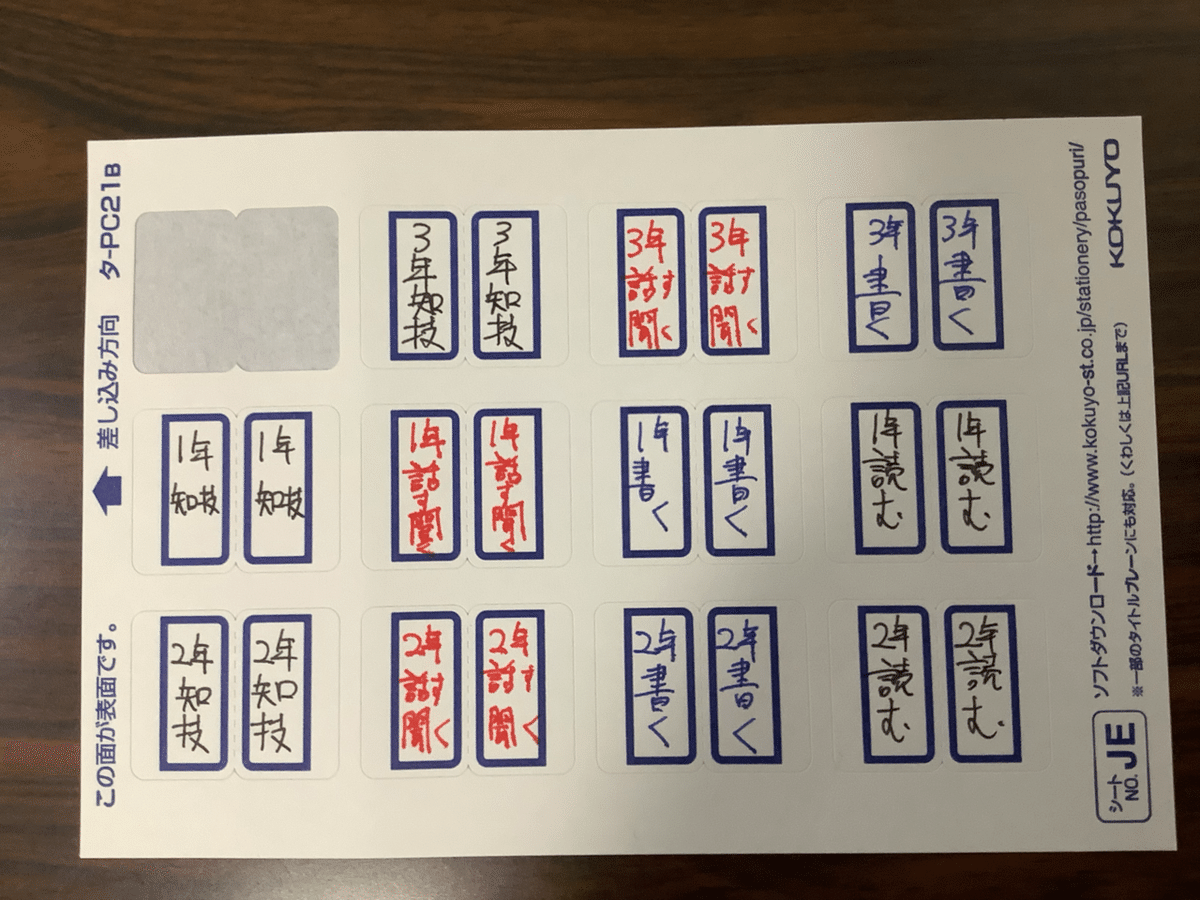 タ-PC21B
差し込み方向
この面が表面です。
3年知技
3年知技
3年
話す
聞く
3年
話す
聞く
3年書く
3年書く
1年
知技
1年
知技
1年
話す
聞く
1年
話す
聞く
1年書く
1年書く
1年読む
1年読む
2年知技
2年知技
2年
話す
聞く
2年
話す
聞く
2年書く
2年書く
2年読む
2年読む
シートNO. JE
ソフトダウンロード→http://www.kokuyo-st.co.jp/stationery/pasopuri/
※一部のタイトルブレーンにも対応。(くわしくは上記URLまで)
KOKUYO